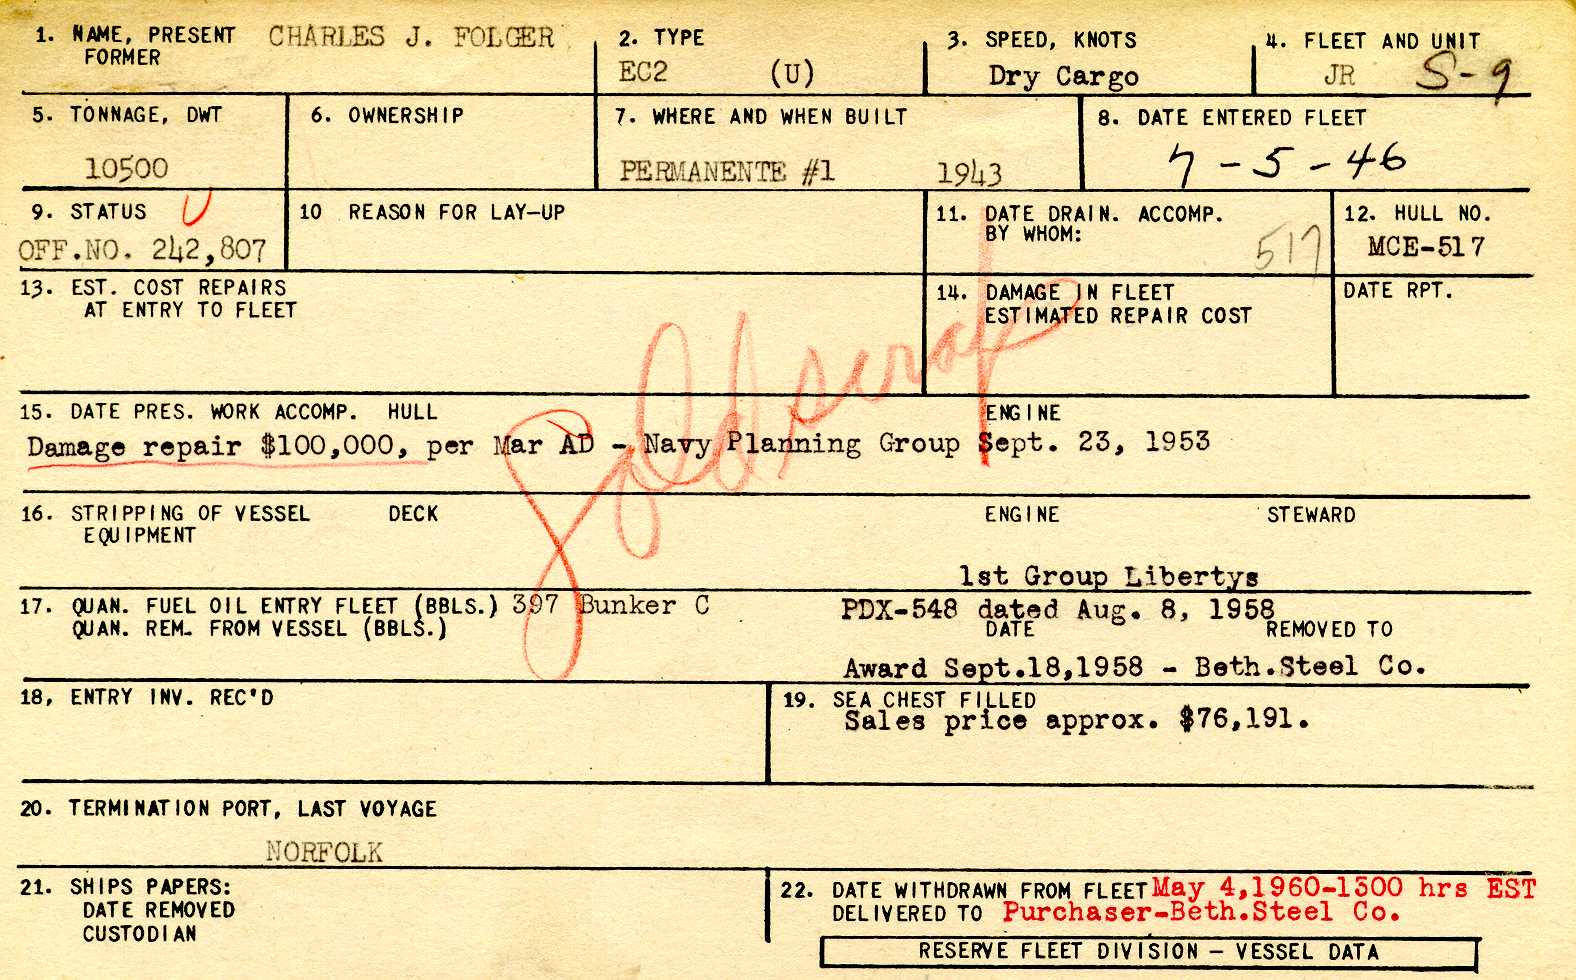 1. NAME, PRESENT CHARLES J. FOLGER
FORMER
2. TYPE
EC2 (U)
3. SPEED, KNOTS
Dry Cargo
4. FLEET AND UNIT
JR S-9
5. TONNAGE, DWT
10500
6. OWNERSHIP
7. WHERE AND WHEN BUILT
PERMANENTE #1 1943
8. DATE ENTERED FLEET
7-5-46
9. STATUS U
OFF.NO. 242,807
10 REASON FOR LAY-UP
11. DATE DRAIN. ACCOMP.
BY WHOM:
517
12. HULL NO.
MCE-517
13. EST. COST REPAIRS
AT ENTRY TO FLEET
14. DAMAGE IN FLEET
ESTIMATED REPAIR COST
DATE RPT.
Sold scrap
15. DATE PRES. WORK ACCOMP. HULL ENGINE
Damage repair $100,000, per Mar AD - Navy Planning Group Sept. 23, 1953
16. STRIPPING OF VESSEL DECK ENGINE STEWARD
EQUIPMENT
1st Group Libertys
17. QUAN. FUEL OIL ENTRY FLEET (BBLS.) 397 Bunker C PDX-548 dated Aug. 8, 1958
QUAN. REM. FROM VESSEL (BBLS.) DATE REMOVED TO
Award Sept.18,1958 - Beth.Steel Co.
18, ENTRY INV. REC'D
19. SEA CHEST FILLED
Sales price approx. $76,191.
20. TERMINATION PORT, LAST VOYAGE
NORFOLK
21. SHIPS PAPERS:
DATE REMOVED
CUSTODIAN
22. DATE WITHDRAWN FROM FLEET May 4,1960-1500 hrs EST
DELIVERED TO Purchaser-Beth.Steel Co.
RESERVE FLEET DIVISION - VESSEL DATA